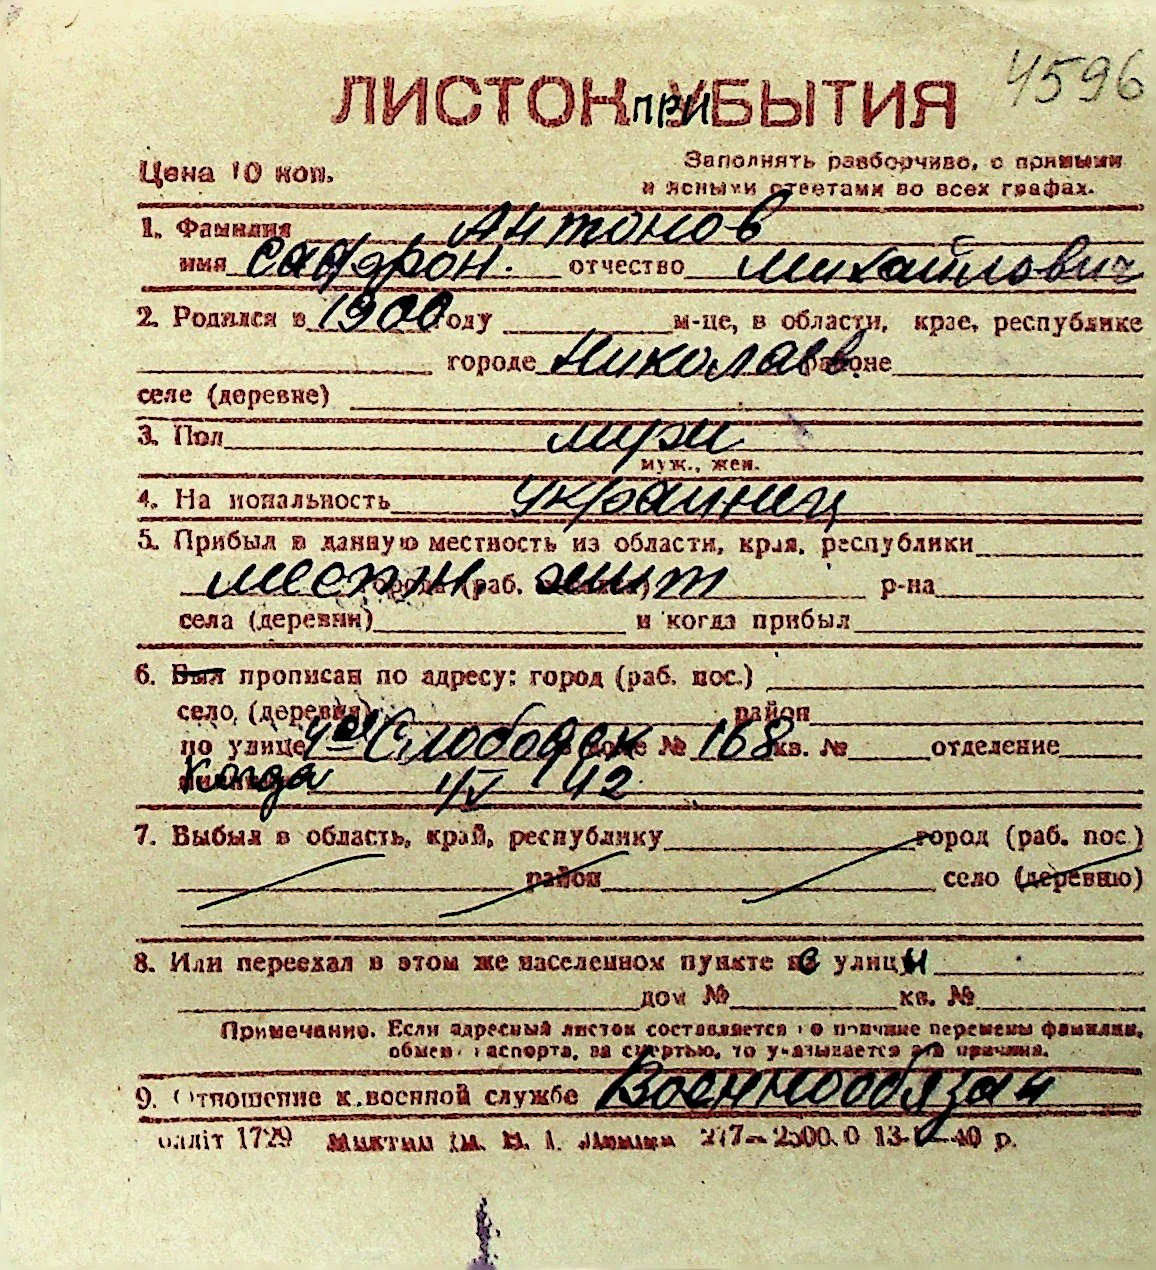 4596
ЛИСТОК ПРИБЫТИЯ
Цена 10 коп.
Заполнять разборчиво, с прямыми
и ясными ответами во всех графах.
1. Фамилия Антонов
имя Сафрон. отчество Михайлович
2. Родился в 1900 году м-це, в области, крае, республике
городе Николаев районе
селе (деревне)
3. Пол муж
муж., жен.
4. На иональность украинец
5. Прибыл в данную местность из области, края, республики
местн жит р-на
села (деревни) и когда прибыл
6. Был прописан по адресу: город (раб. пос.)
село, (деревня) район
по улице 4ая Слободск доме № 168 кв. № отделение
Когда 4/V 42
7. Выбыл в область, край, республику город (раб. пос.)
район село (деревню)
8. Или переехал в этом же населенном пункте с улицы
дом № кв. №
Примечание. Если адресный листок составляется по причине перемены фамилии,
обмен паспорта, за смертью, то указывается эта причина.
9. Отношение к военной службе Военнообязан
1729 13- -40 р.